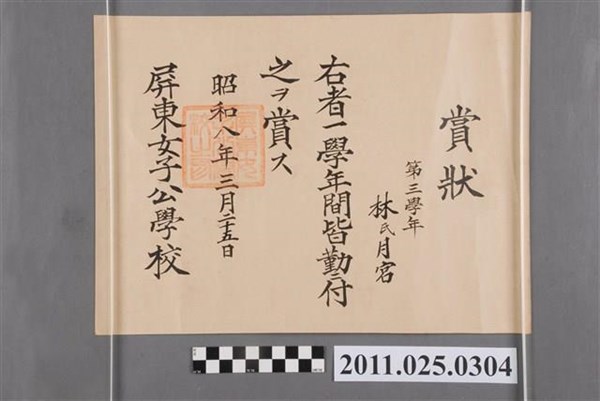 賞狀
第三學年
林氏月宮
右者一學年間皆勤ニ付
之ヲ賞ス
昭和八年三月二十五日
屏東女子公學校
2011.025.0304